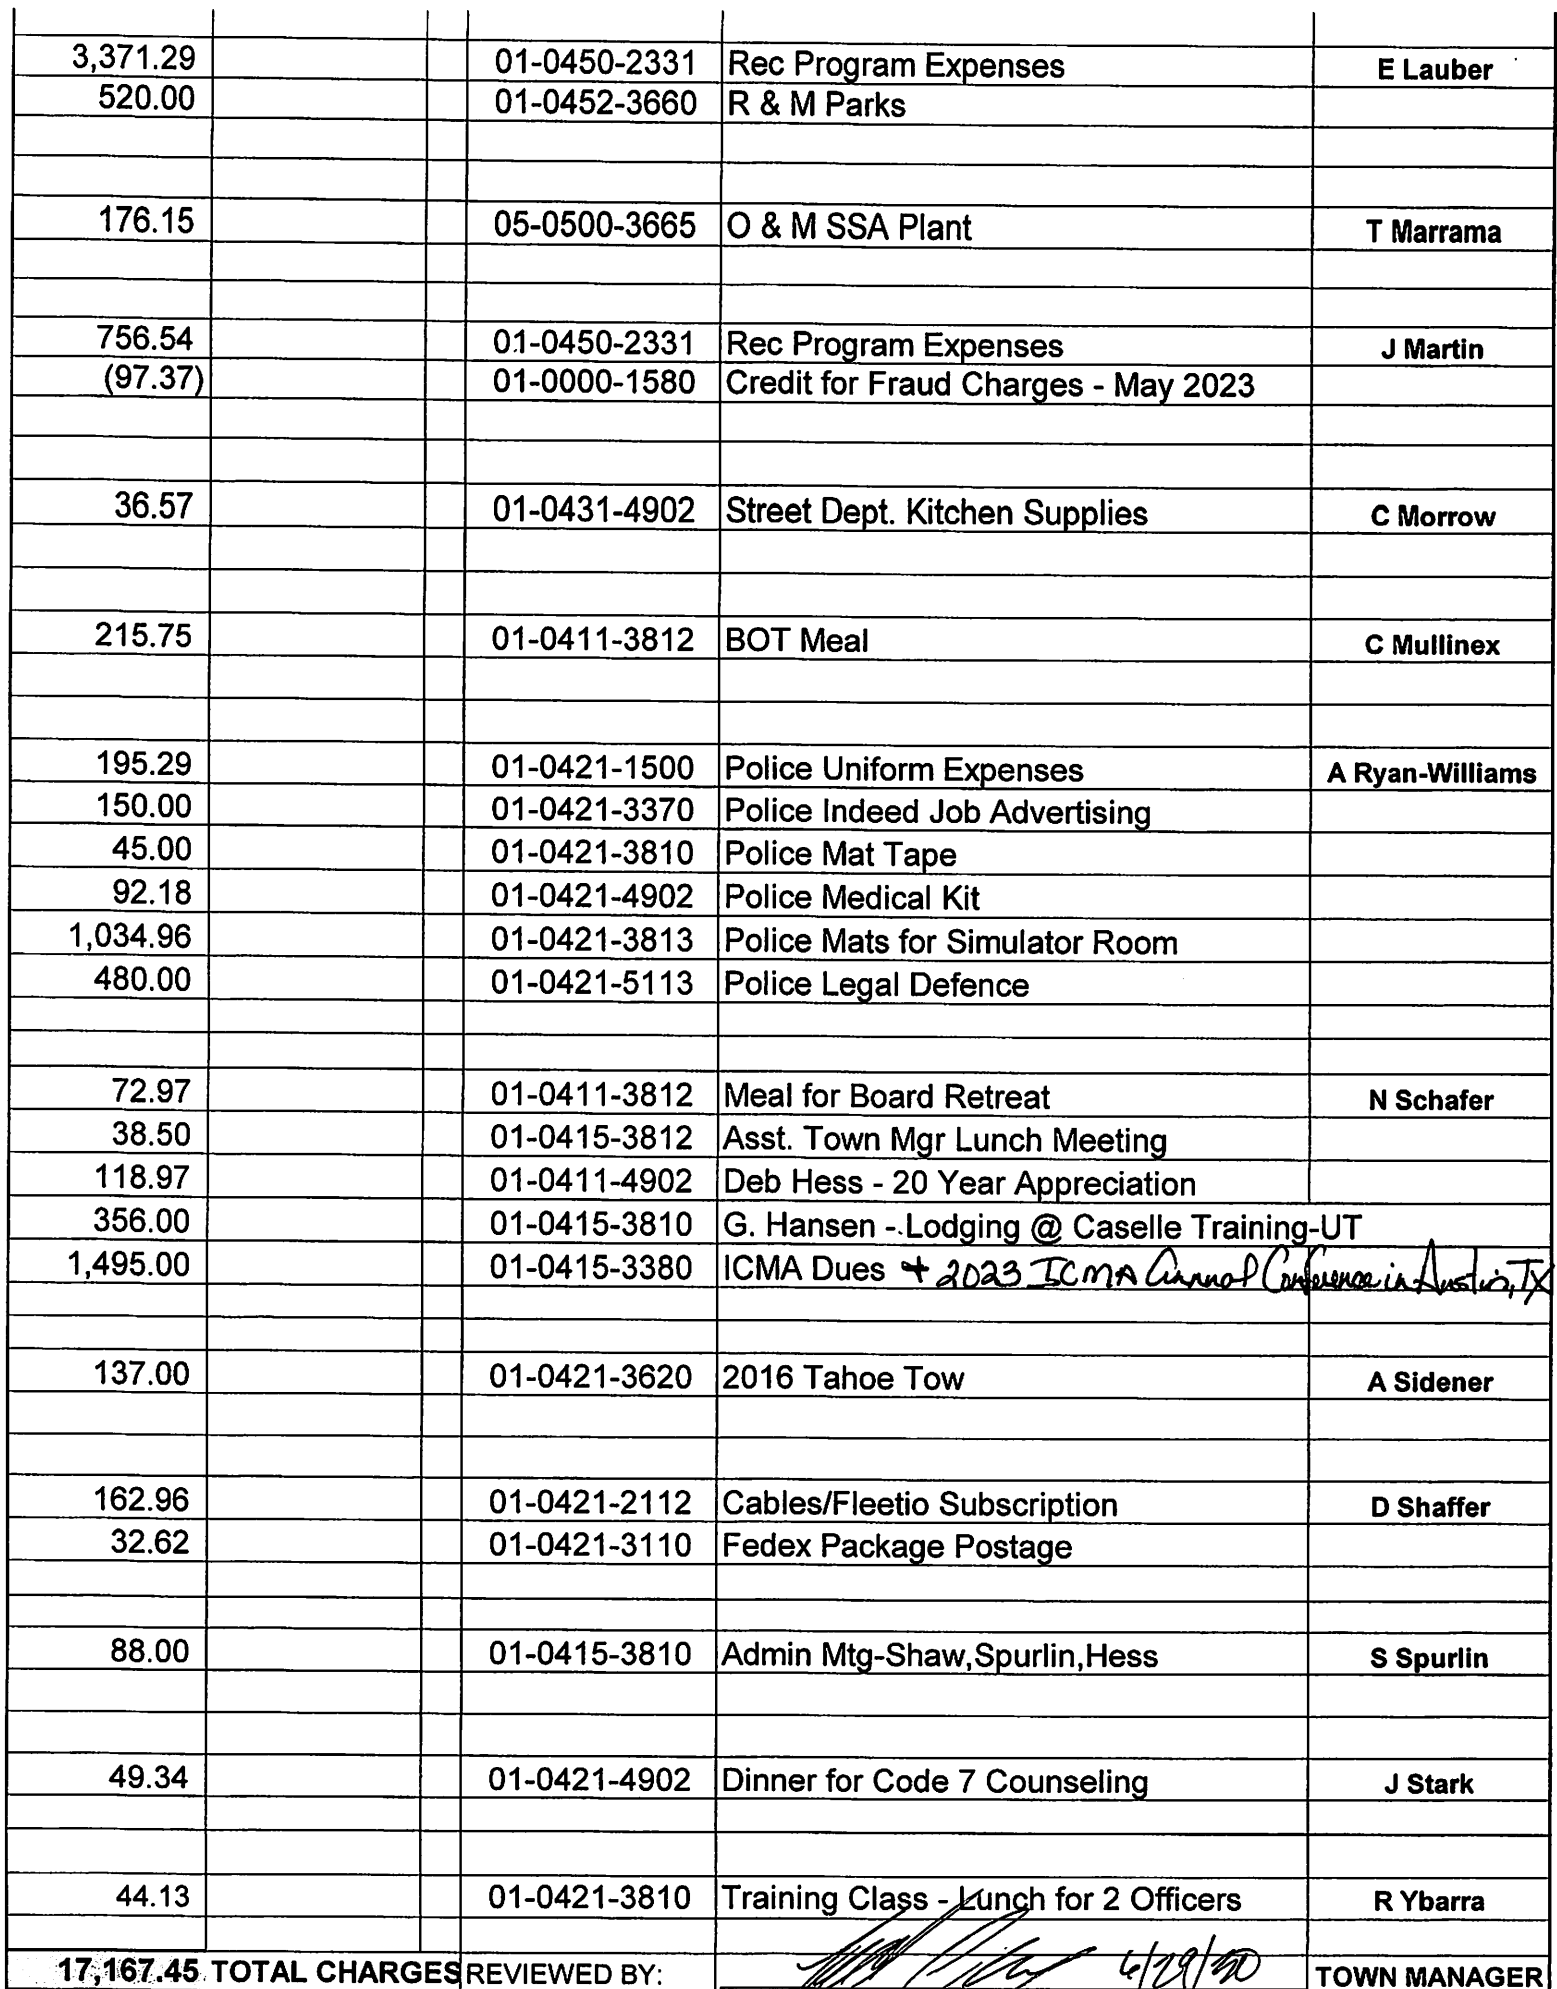 3,371.29 01-0450-2331 Rec Program Expenses E Lauber
520.00 01-0452-3660 R & M Parks
176.15 05-0500-3665 O & M SSA Plant T Marrama
756.54 01-0450-2331 Rec Program Expenses J Martin
(97.37) 01-0000-1580 Credit for Fraud Charges - May 2023
36.57 01-0431-4902 Street Dept. Kitchen Supplies C Morrow
215.75 01-0411-3812 BOT Meal C Mullinex
195.29 01-0421-1500 Police Uniform Expenses A Ryan-Williams
150.00 01-0421-3370 Police Indeed Job Advertising
45.00 01-0421-3810 Police Mat Tape
92.18 01-0421-4902 Police Medical Kit
1,034.96 01-0421-3813 Police Mats for Simulator Room
480.00 01-0421-5113 Police Legal Defence
72.97 01-0411-3812 Meal for Board Retreat N Schafer
38.50 01-0415-3812 Asst. Town Mgr Lunch Meeting
118.97 01-0411-4902 Deb Hess - 20 Year Appreciation
356.00 01-0415-3810 G. Hansen - Lodging @ Caselle Training-UT
1,495.00 01-0415-3380 ICMA Dues + 2023 ICMA Annual Conference in Austin, TX
137.00 01-0421-3620 2016 Tahoe Tow A Sidener
162.96 01-0421-2112 Cables/Fleetio Subscription D Shaffer
32.62 01-0421-3110 Fedex Package Postage
88.00 01-0415-3810 Admin Mtg-Shaw,Spurlin,Hess S Spurlin
49.34 01-0421-4902 Dinner for Code 7 Counseling J Stark
44.13 01-0421-3810 Training Class - Lunch for 2 Officers R Ybarra
17,167.45 TOTAL CHARGES REVIEWED BY: TOWN MANAGER